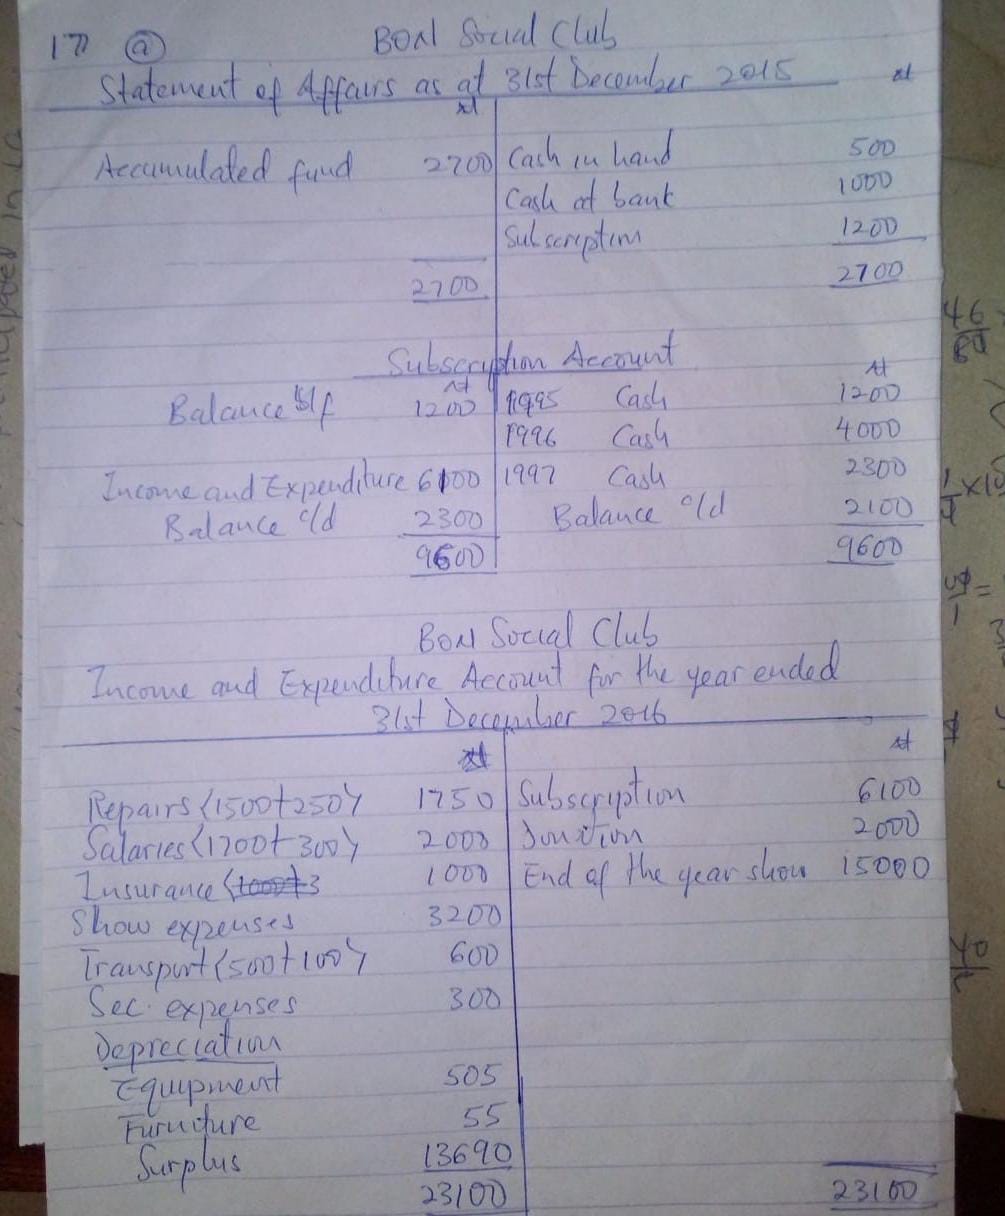 17 (a) BON Social Club
Statement of Affairs as at 31st December 2015
₦ ₦
Accumulated fund 2700 Cash in hand 500
Cash at bank 1000
Subscription 1200
2700 2700
Subscription Account
₦ ₦
Balance b/f 1200 1995 Cash 1200
1996 Cash 4000
Income and Expenditure 6100 1997 Cash 2300
Balance c/d 2300 Balance c/d 2100
9600 9600
BON Social Club
Income and Expenditure Account for the year ended
31st December 2016
₦ ₦
Repairs (1500+250) 1750 Subscription 6100
Salaries (1700+300) 2000 Donation 2000
Insurance 1000 End of the year show 15000
Show expenses 3200
Transport (500+100) 600
Sec. expenses 300
Depreciation
Equipment 505
Furniture 55
Surplus 13690
23100 23100